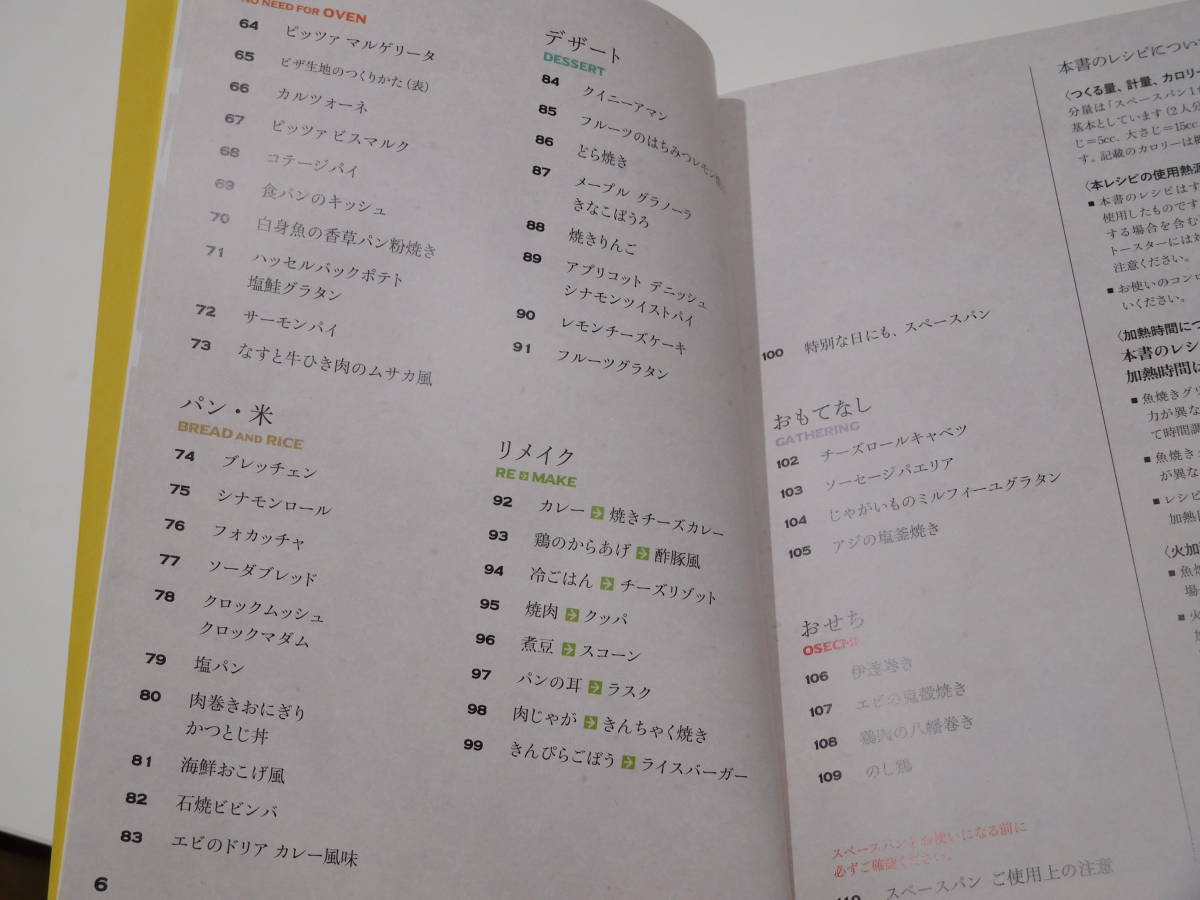 NO NEED FOR OVEN
64 ピッツァ マルゲリータ
65 ピザ生地のつくりかた(表)
66 カルツォーネ
67 ピッツァ ビスマルク
68 コテージパイ
69 食パンのキッシュ
70 白身魚の香草パン粉焼き
71 ハッセルバックポテト
塩鮭グラタン
72 サーモンパイ
73 なすと牛ひき肉のムサカ風
パン・米
BREAD AND RICE
74 ブレッチェン
75 シナモンロール
76 フォカッチャ
77 ソーダブレッド
78 クロックムッシュ
クロックマダム
79 塩パン
80 肉巻きおにぎり
かつとじ丼
81 海鮮おこげ風
82 石焼ビビンバ
83 エビのドリア カレー風味
6
デザート
DESSERT
84 クイニーアマン
85 フルーツのはちみつレモン
86 どら焼き
87 メープル グラノーラ
きなこぼうろ
88 焼きりんご
89 アプリコット デニッシュ
シナモンツイストパイ
90 レモンチーズケーキ
91 フルーツグラタン
リメイク
RE➔MAKE
92 カレー➔焼きチーズカレー
93 鶏のからあげ➔酢豚風
94 冷ごはん➔チーズリゾット
95 焼肉➔クッパ
96 煮豆➔スコーン
97 パンの耳➔ラスク
98 肉じゃが➔きんちゃく焼き
99 きんぴらごぼう➔ライスバーガー
100 特別な日にも、スペースパン
おもてなし
GATHERING
102 チーズロールキャベツ
103 ソーセージパエリア
104 じゃがいものミルフィーユグラタン
105 アジの塩釜焼き
おせち
OSECHI
106 伊達巻き
107 エビの鬼殻焼き
108 鶏肉の八幡巻き
109 のし鶏
スペースパンをお使いになる前に
必ずご確認ください。
110 スペースパン ご使用上の注意
本書のレシピについ
〈つくる量、計量、カロリー
分量は「スペースパン1
基本としています(2人分
じ=5cc、大さじ=15cc
す。記載のカロリーは
〈本レシピの使用熱源
■ 本書のレシピは
使用したものです
する場合を含む
トースターには対
注意ください。
■ お使いのコンロ
いください。
〈加熱時間につ
本書のレシ
加熱時間は
■ 魚焼きグリ
力が異な
て時間調
■ 魚焼き
が異な
■ レシピ
加熱
〈火加
■ 魚焼
場
■ 火